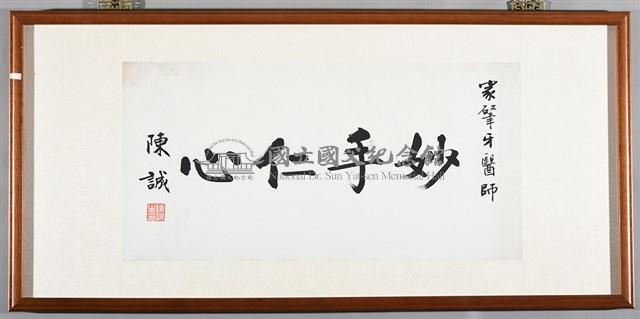 家肇牙醫師
妙手仁心
陳誠
國立國父紀念館
National Dr. Sun Yat-sen Memorial Hall